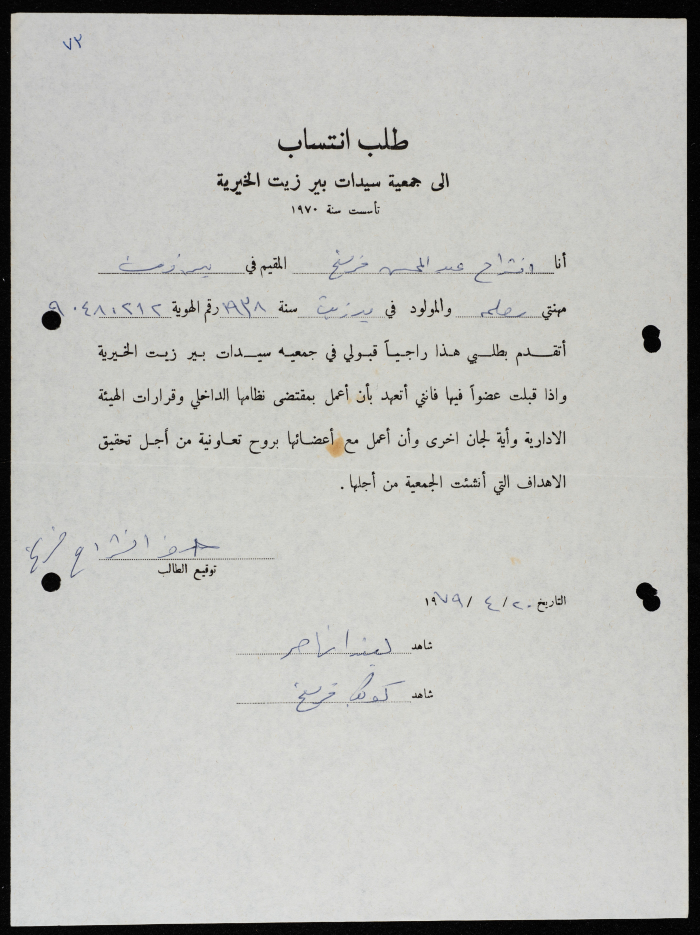 ٧٣
طلب انتساب
الى جمعية سيدات بير زيت الخيرية
تأسست سنة ١٩٧٠
أنا انشراح عبد المحسن فرسخ المقيم في بيرزيت
مهنتي معلمه والمولود في بيرزيت سنة ١٩٣٨ رقم الهوية ٩٠٤٨٠٢١٢
أتقدم بطلبي هذا راجياً قبولي في جمعيه سيدات بير زيت الخيرية
واذا قبلت عضواً فيها فانني أتعهد بأن أعمل بمقتضى نظامها الداخلي وقرارات الهيئة
الادارية وأية لجان اخرى وأن أعمل مع أعضائها بروح تعاونية من أجل تحقيق
الاهداف التي أنشئت الجمعية من أجلها .
انشراح فرسخ
توقيع الطالب
التاريخ ٢٠ / ٤ / ١٩٧٩
شاهد ليندا ناصر
شاهد فرسخ